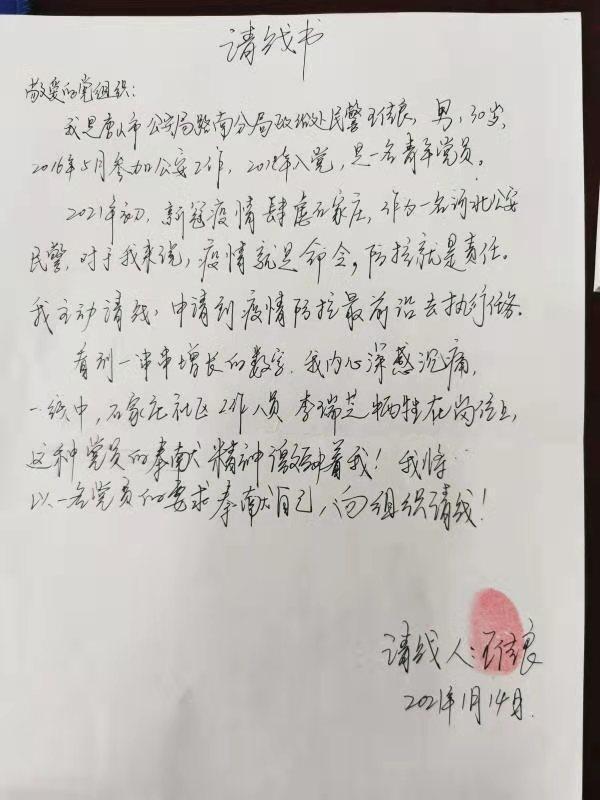 请战书
敬爱的党组织：
我是唐山市公安局路南分局政治处民警王佳良，男，30岁，
2016年5月参加公安工作，2012年入党，是一名青年党员。
2021年初，新冠疫情肆虐石家庄，作为一名河北公安
民警，对于我来说，疫情就是命令，防控就是责任。
我主动请战，申请到疫情防控最前沿去执行任务。
看到一串串增长的数字，我内心深感沉痛，
一线中，石家庄社区工作人员李瑞芝牺牲在岗位上，
这种党员的奉献精神激励着我！我将
以一名党员的要求奉献自己，向组织请战！
请战人：王佳良
2021年1月14日.